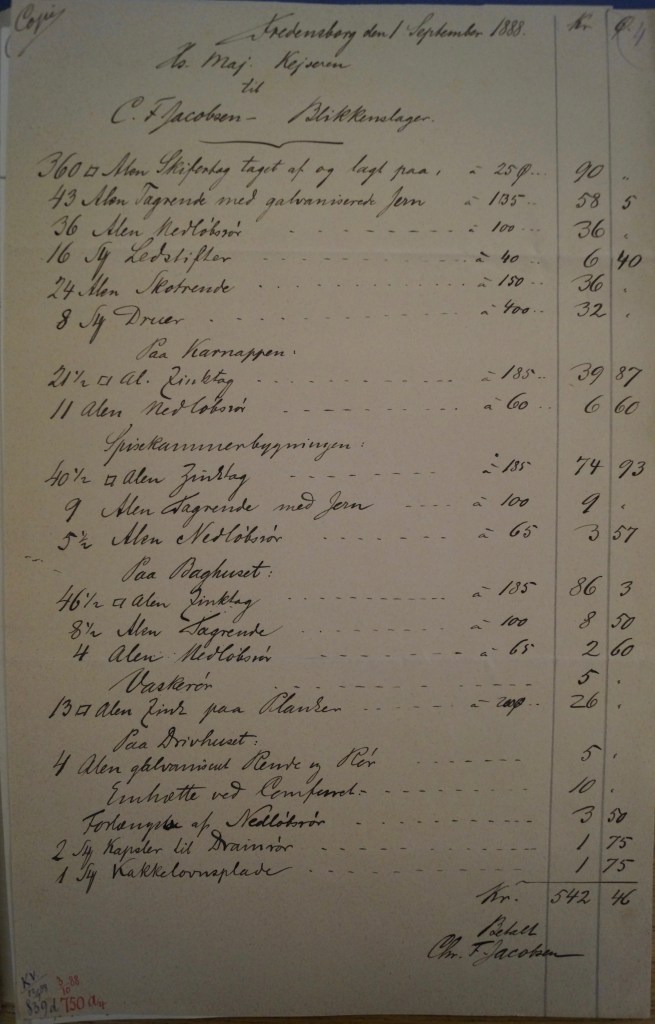 Copie
Fredensborg den 1 September 1888. Kr. Ø.
Hs. Maj. Kejseren
til
C. F. Jacobsen - Blikkenslager.
360 □ Alen Skifertag taget af og lagt paa, à 25 Ø .. 90 "
43 Alen Tagrende med galvaniserede Jern à 135 .. 58 5
36 Alen Nedløbsrør à 100 .. 36 .
16 St Ledstifter à 40 .. 6 40
24 Alen Skotrende à 150 .. 36 .
8 St Druer à 400 .. 32 .
Paa Karnappen:
21½ □ Al. Zinktag à 185 .. 39 87
11 Alen Nedløbsrør à 60 .. 6 60
Spisekammerbygningen:
40½ □ Alen Zinktag à 185 74 93
9 Alen Tagrende med Jern à 100 9 .
5½ Alen Nedløbsrør à 65 3 57
Paa Baghuset:
46½ □ Alen Zinktag à 185 86 3
8½ Alen Tagrende à 100 8 50
4 Alen Nedløbsrør à 65 2 60
Vaskerør 5 .
13 □ Alen Zink paa Planker à 200 .. 26 .
Paa Drivhuset:
4 Alen galvaniseret Rende og Rør 5 .
Emhætte ved Comfuret 10 .
af Nedløbsrør 3 50
2 St Kapsler til Drainrør 1 75
1 St Kakkelovnsplade 1 75
Kr. 542 46
Betalt
Chr. F. Jacobsen
839d 750a